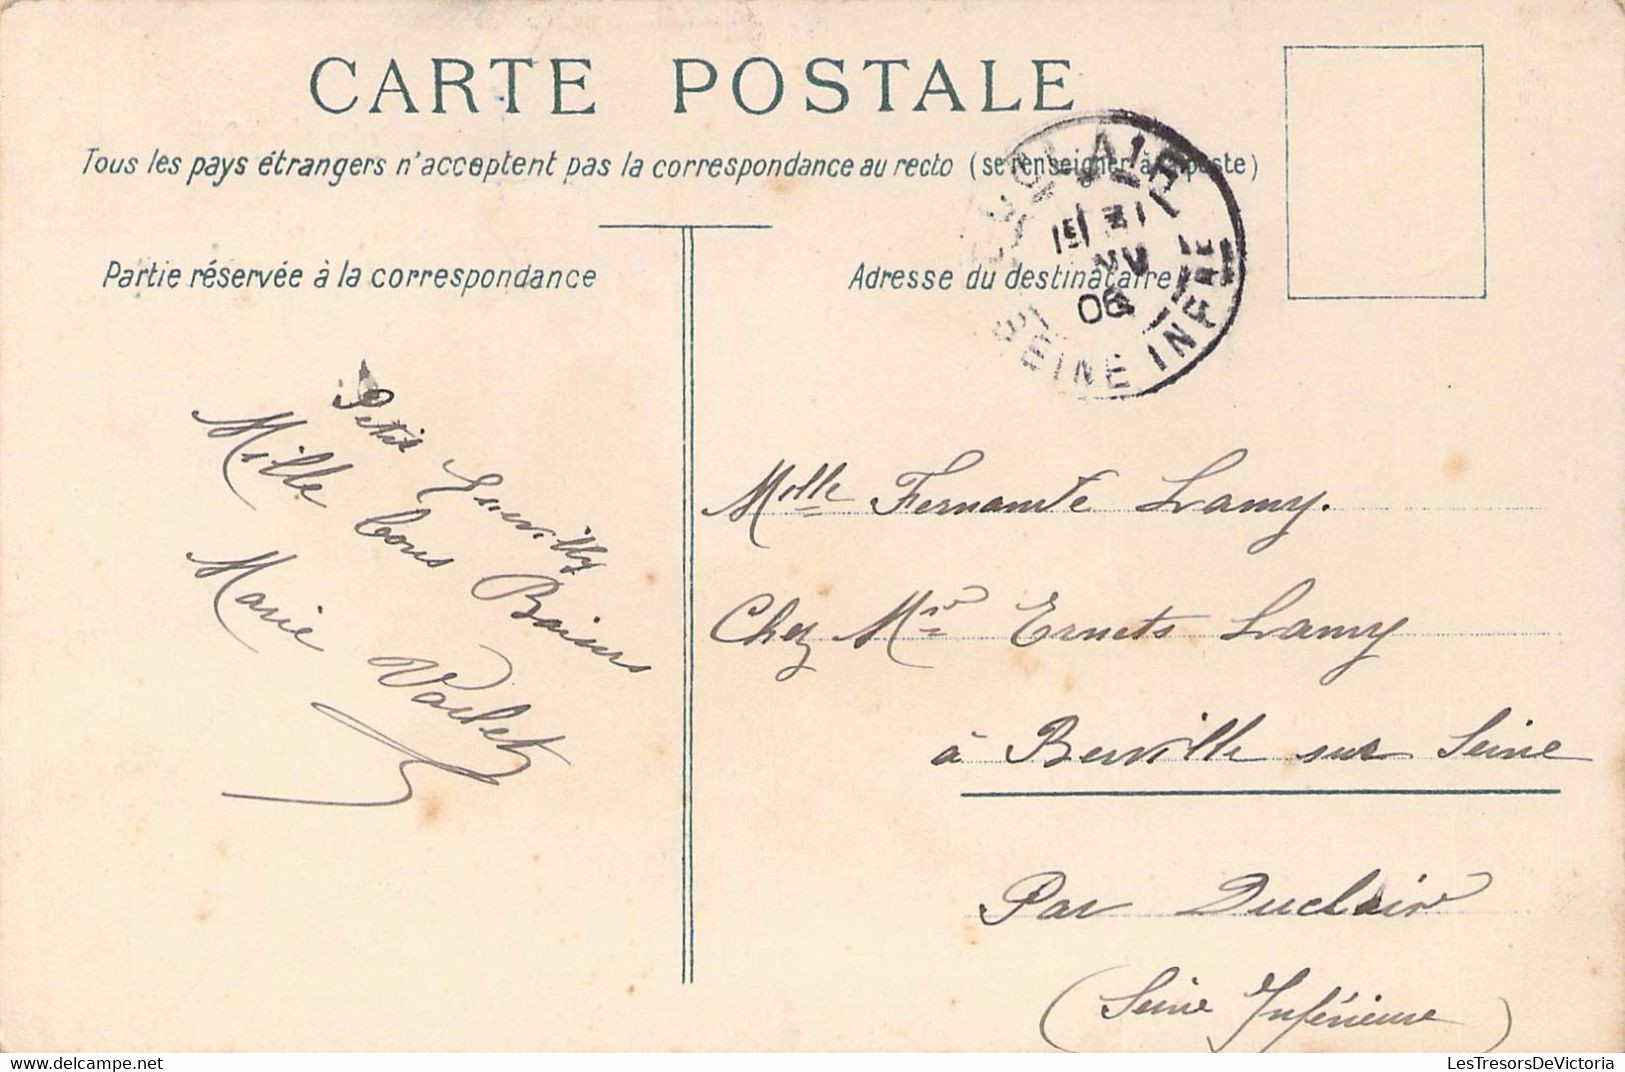 CARTE POSTALE
Tous les pays étrangers n'acceptent pas la correspondance au recto (se renseigner à la poste)
Partie réservée à la correspondance
Adresse du destinataire
DUCLAIR
31
06
SEINE INFRE
Petit
Mille bons Baisers
Marie
Mlle Fernande Lamy.
Chez Mr Ernets Lamy
à Berville sur Seine
Par Duclair
(Seine Inférieure)
LesTresorsDeVictoria